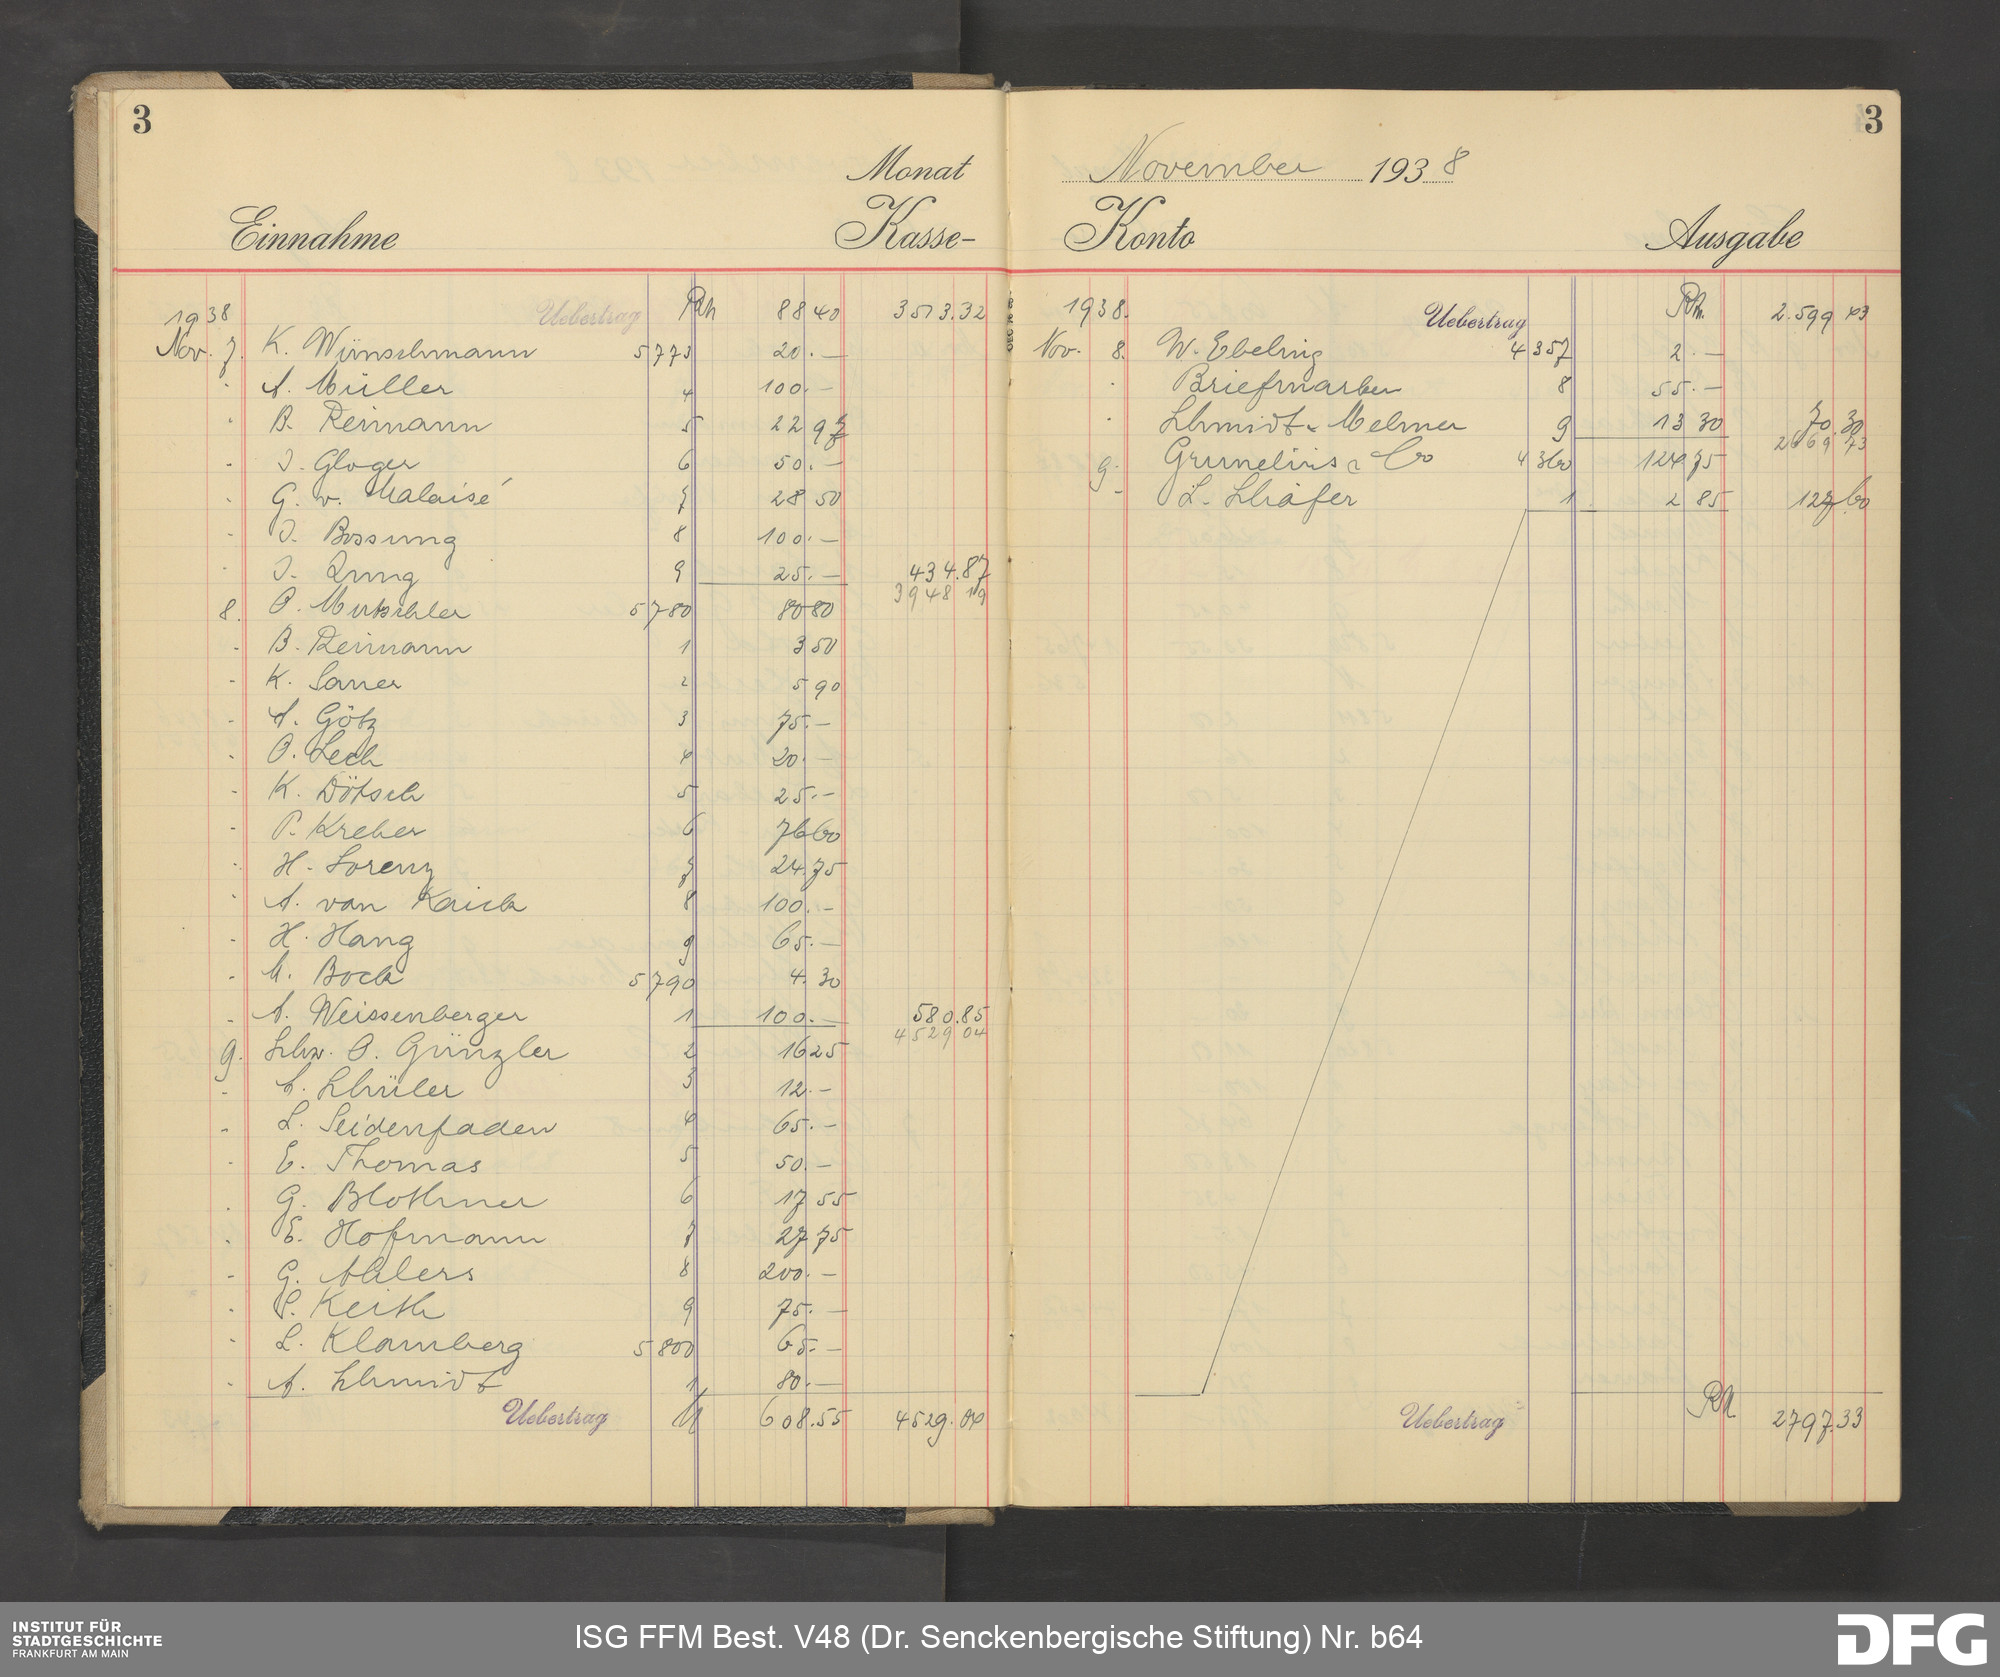 3
Monat
Einnahme Kasse-
1938 Uebertrag RM 88 40 3513.32
Nov. 7. K. Wünschmann 5773 20.—
- A. Müller 4 100.—
- B. Reimann 5 22 97
- J. Gloger 6 50.—
- G. v. Malaisé 7 28 50
- J. Bossung 8 100.—
- J. Jung 9 25.— 434.87
3948 19
8. O. Mutschler 5780 80 80
- B. Reimann 1 3 50
- K. Sauer 2 5 90
- A. Götz 3 75.—
- O. Lech 4 20.—
- K. Dötsch 5 25.—
- P. Kreher 6 76 60
- H. Lorenz 7 24.75
- A. van Kaick 8 100.—
- H. Haug 9 65.—
- M. Bock 5790 4.30
- A. Weissenberger 1 100.— 580.85
4529 04
9. Schw. O. Günzler 2 16 25
- A. Schüler 3 12.—
- L. Seidenfaden 4 65.—
- E. Thomas 5 50.—
- G. Blothner 6 17 55
- E. Hofmann 7 27 75
- G. Ahlers 8 200.—
- P. Keith 9 75.—
- L. Klamberg 5800 65.—
- A. Schmidt 1 80.—
Uebertrag M 608.55 4529.04
3
November 1938
Konto Ausgabe
1938. Uebertrag RM. 2.599 43
Nov. 8. W. Ebeling 4357 2.—
- Briefmarken 8 55.—
- Schmidt & Melmer 9 13 30 70.30
2669 73
9. Grunelius & Co 4360 124.75
- L. Schäfer 1 2 85 127 60
Uebertrag RM 2797.33
INSTITUT FÜR
STADTGESCHICHTE
FRANKFURT AM MAIN
ISG FFM Best. V48 (Dr. Senckenbergische Stiftung) Nr. b64
DFG